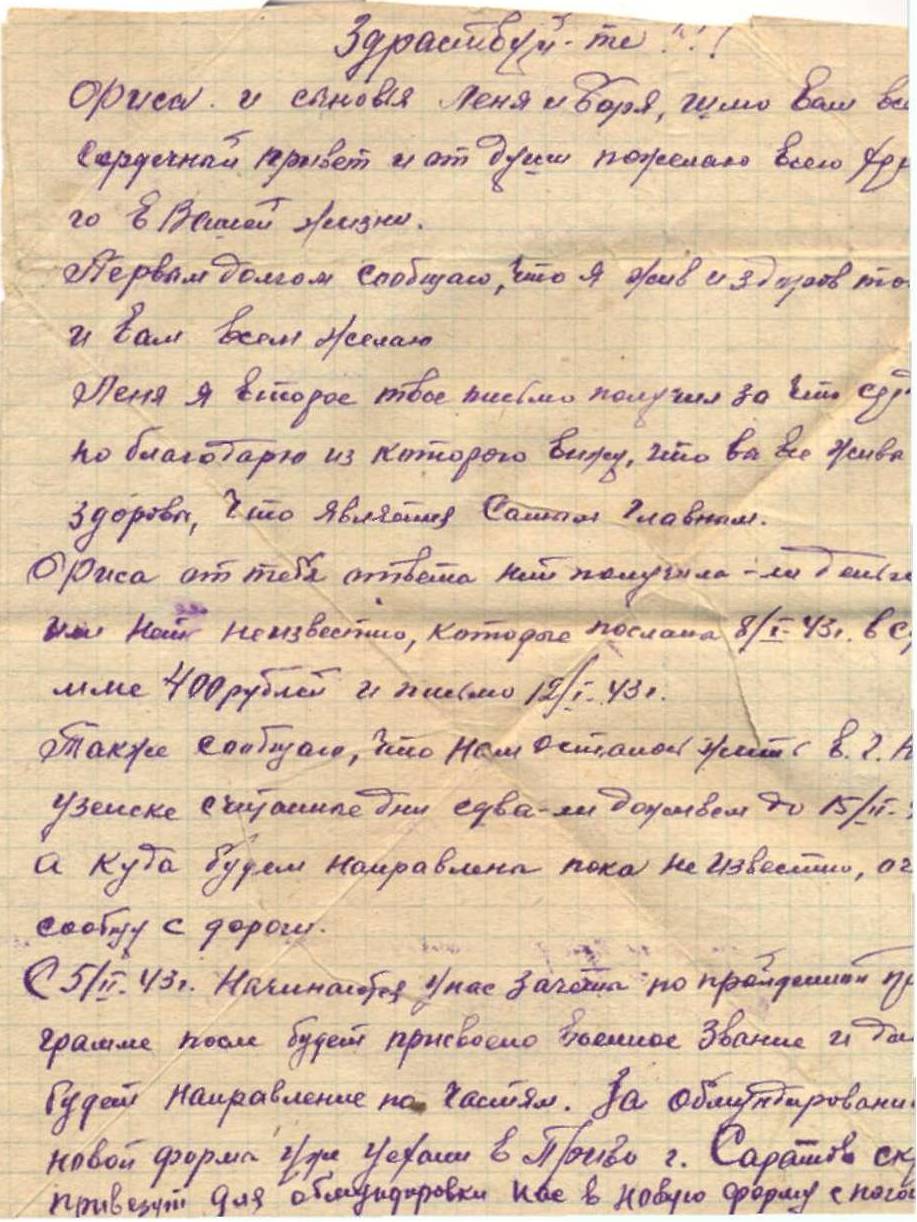 Здраствуй-те!!!
Фриса. и сыновья Леня и Боря, шлю Вам
сердечный привет и от души пожелаю всего
го в Вашей жизни.
Первым долгом сообщаю, что я жив и здоров
и Вам всем желаю
Леня я второе твое письмо получил за что
но благодарю из которого вижу, что вы все живы
здоровы, что является Самым главным.
Фриса от тебя ответа нет получила-ли деньги
или нет неизвестно, которые послана 8/I-43г. в
мме 400 рублей и письмо 12/I-43г.
Также сообщаю, что нам осталось жить в г.
узенске считанные дни едва-ли доживем до 15/II-
а куда будем направлены пока не известно,
сообщу с дороги.
С 5/II-43г. Начинаются у нас зачеты по пройденной
грамме после будет присвоено военное Звание и
будет направление по частям. За обмундировани
новой форма уже уехали в Приво г. Саратов
привезут для обмундировки нас в новую форму с